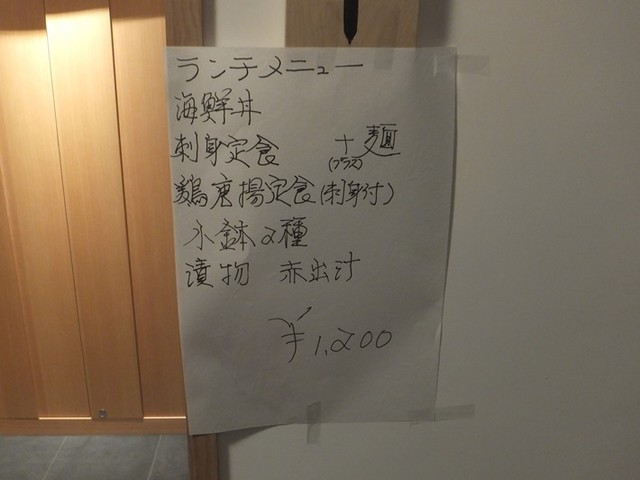 ランチメニュー
海鮮丼
刺身定食 + 麺
(プラス)
鶏唐揚定食(刺身付)
小鉢2種
漬物 赤出汁
¥1,200